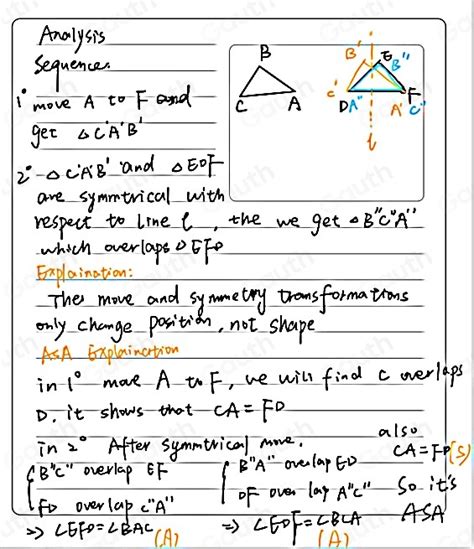 Analysis
Sequence.
1° move A to F and
get △C'A'B'
2° △C'A'B' and △EDF
are symmtrical with
respect to line l, the we get △B"C"A"
which overlaps △EFD
Explaination:
Thes move and symmetry transformations
only change position, not shape
ASA Explaination
in 1° move A to F, we will find C overlaps
D. it shows that CA=FD
in 2° After symmtrical move.
also
CA=FD (S)
B"C" overlap EF
B"A" overlap ED
So it's
FD overlap C"A"
DF overlap A"C"
ASA
⇒ ∠EFD=∠BAC (A)
⇒ ∠EDF=∠BCA (A)
B
C
A
B'
E
B"
C'
D
A"
A'
F
C"
l
l
Gauth